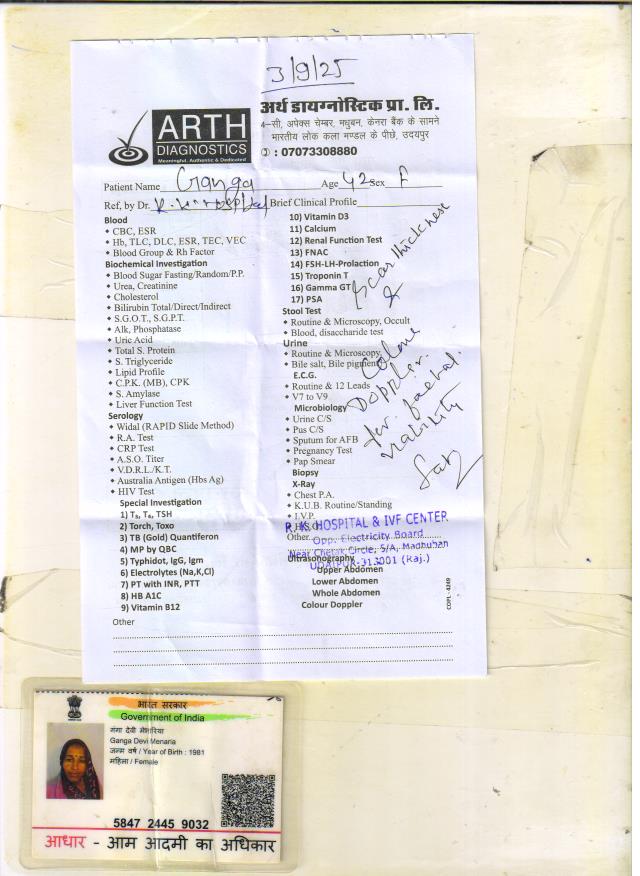 3/9/25
ARTH
DIAGNOSTICS
Meaningful, Authentic & Dedicated
अर्थ डायग्नोस्टिक प्रा. लि.
4-सी, अपेक्स चेम्बर, मधुबन, केनरा बैंक के सामने
भारतीय लोक कला मण्डल के पीछे, उदयपुर
: 07073308880
Patient Name Ganga Age 42 Sex F
Ref, by Dr. Brief Clinical Profile
Blood
CBC, ESR
Hb, TLC, DLC, ESR, TEC, VEC
Blood Group & Rh Factor
Biochemical Investigation
Blood Sugar Fasting/Random/P.P.
Urea, Creatinine
Cholesterol
Bilirubin Total/Direct/Indirect
S.G.O.T., S.G.P.T.
Alk, Phosphatase
Uric Acid
Total S. Protein
S. Triglyceride
Lipid Profile
C.P.K. (MB), CPK
S. Amylase
Liver Function Test
Serology
Widal (RAPID Slide Method)
R.A. Test
CRP Test
A.S.O. Titer
V.D.R.L./K.T.
Australia Antigen (Hbs Ag)
HIV Test
Special Investigation
1) T₃, T₄, TSH
2) Torch, Toxo
3) TB (Gold) Quantiferon
4) MP by QBC
5) Typhidot, IgG, Igm
6) Electrolytes (Na,K,Cl)
7) PT with INR, PTT
8) HB A1C
9) Vitamin B12
10) Vitamin D3
11) Calcium
12) Renal Function Test
13) FNAC
14) FSH-LH-Prolaction
15) Troponin T
16) Gamma GT
17) PSA
Stool Test
Routine & Microscopy, Occult
Blood, disaccharide test
Urine
Routine & Microscopy
Bile salt, Bile pigment
E.C.G.
Routine & 12 Leads
V7 to V9
Microbiology
Urine C/S
Pus C/S
Sputum for AFB
Pregnancy Test
Pap Smear
Biopsy
X-Ray
Chest P.A.
K.U.B. Routine/Standing
I.V.P.
Other
Ultrasonography
Upper Abdomen
Lower Abdomen
Whole Abdomen
Colour Doppler
Scar thickness
&
Colour
Doppler
for faetal
viability
R.K. HOSPITAL & IVF CENTER
Opp. Electricity Board
Near Chetak Circle, 5/A, Madhuban
UDAIPUR-313001 (Raj.)
COPL - 4249
Other
भारत सरकार
Government of India
गंगा देवी मेनारिया
Ganga Devi Menaria
जन्म वर्ष / Year of Birth : 1981
महिला / Female
5847 2445 9032
आधार - आम आदमी का अधिकार